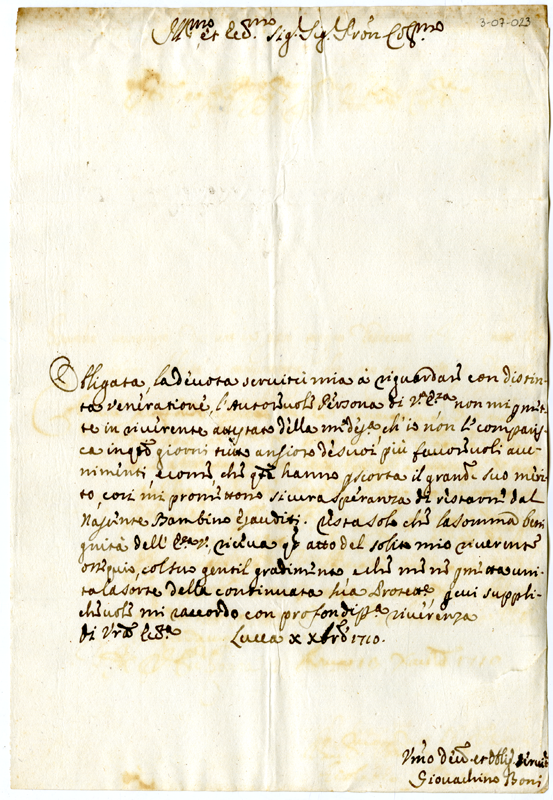 3-07-023
Ill.mo et Ecc.mo Sig.r Sig.r Pron Col.mo
Obligata la devota servitù mia à riguardare con distin-
ta veneratione l'Autorevole Persona di V.ra Ecc.za non mi p̄met-
te in riverente attestato della med.ma ch'io non le comparis-
ca in q̄sti giorni tutto ansioso de suoi più favorevoli avve-
nimenti, e come che q̄sti hanno p̄ scorta il grande suo meri-
to, così mi promettono sicura speranza di restarne dal
Nascente Bambino esauditi. Resta solo che la somma beni-
gnità dell' Ecc.za V. riceva q̄sto atto del solito mio riverente
ossequio, col suo gentil gradimento e che me ne p̄metta uni-
ta la sorte della continuata sua Protett.e p̄ cui suppli-
chevole mi raccordo con profondiss.a riverenza
di Vra Ecc.za Lucca X Xbre 1710.
Umo Dev.o et Obl.o Servit.e
Giovachino Boni